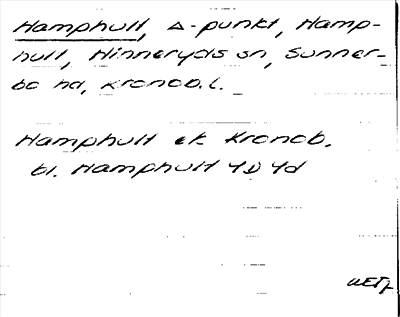 Hamphult, Δ-punkt, Hamp-
hult, Hinneryds sn, Sunner-
bo hd, Kronob. l.
Hamphult ek Kronob.
bl. Hamphult 4D 4d